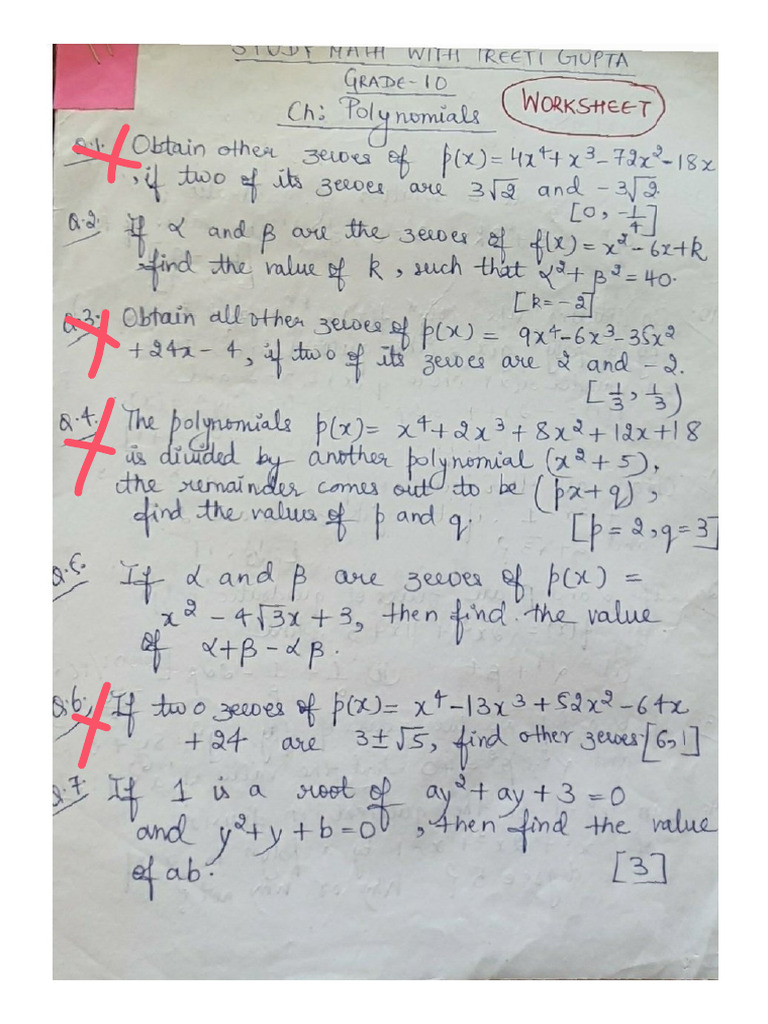 STUDY MATH WITH PREETI GUPTA
GRADE-10
Ch: Polynomials
WORKSHEET
Q.1. Obtain other zeroes of p(x) = 4x⁴ + x³ - 72x² - 18x
, if two of its zeroes are 3√2 and -3√2.
[0, -1/4]
Q.2. If α and β are the zeroes of f(x) = x² - 6x + k
find the value of k, such that α² + β² = 40.
[k = -2]
Q.3. Obtain all other zeroes of p(x) = 9x⁴ - 6x³ - 35x²
+ 24x - 4, if two of its zeroes are 2 and -2.
[1/3, 1/3)
Q.4. The polynomials p(x) = x⁴ + 2x³ + 8x² + 12x + 18
is divided by another polynomial (x² + 5),
the remainder comes out to be (px + q),
find the values of p and q. [p = 2, q = 3]
Q.5. If α and β are zeroes of p(x) =
x² - 4√3x + 3, then find the value
of α + β - αβ.
Q.6. If two zeroes of p(x) = x⁴ - 13x³ + 52x² - 64x
+ 24 are 3 ± √5, find other zeroes. [6,1]
Q.7. If 1 is a root of ay² + ay + 3 = 0
and y² + y + b = 0, then find the value
of ab. [3]